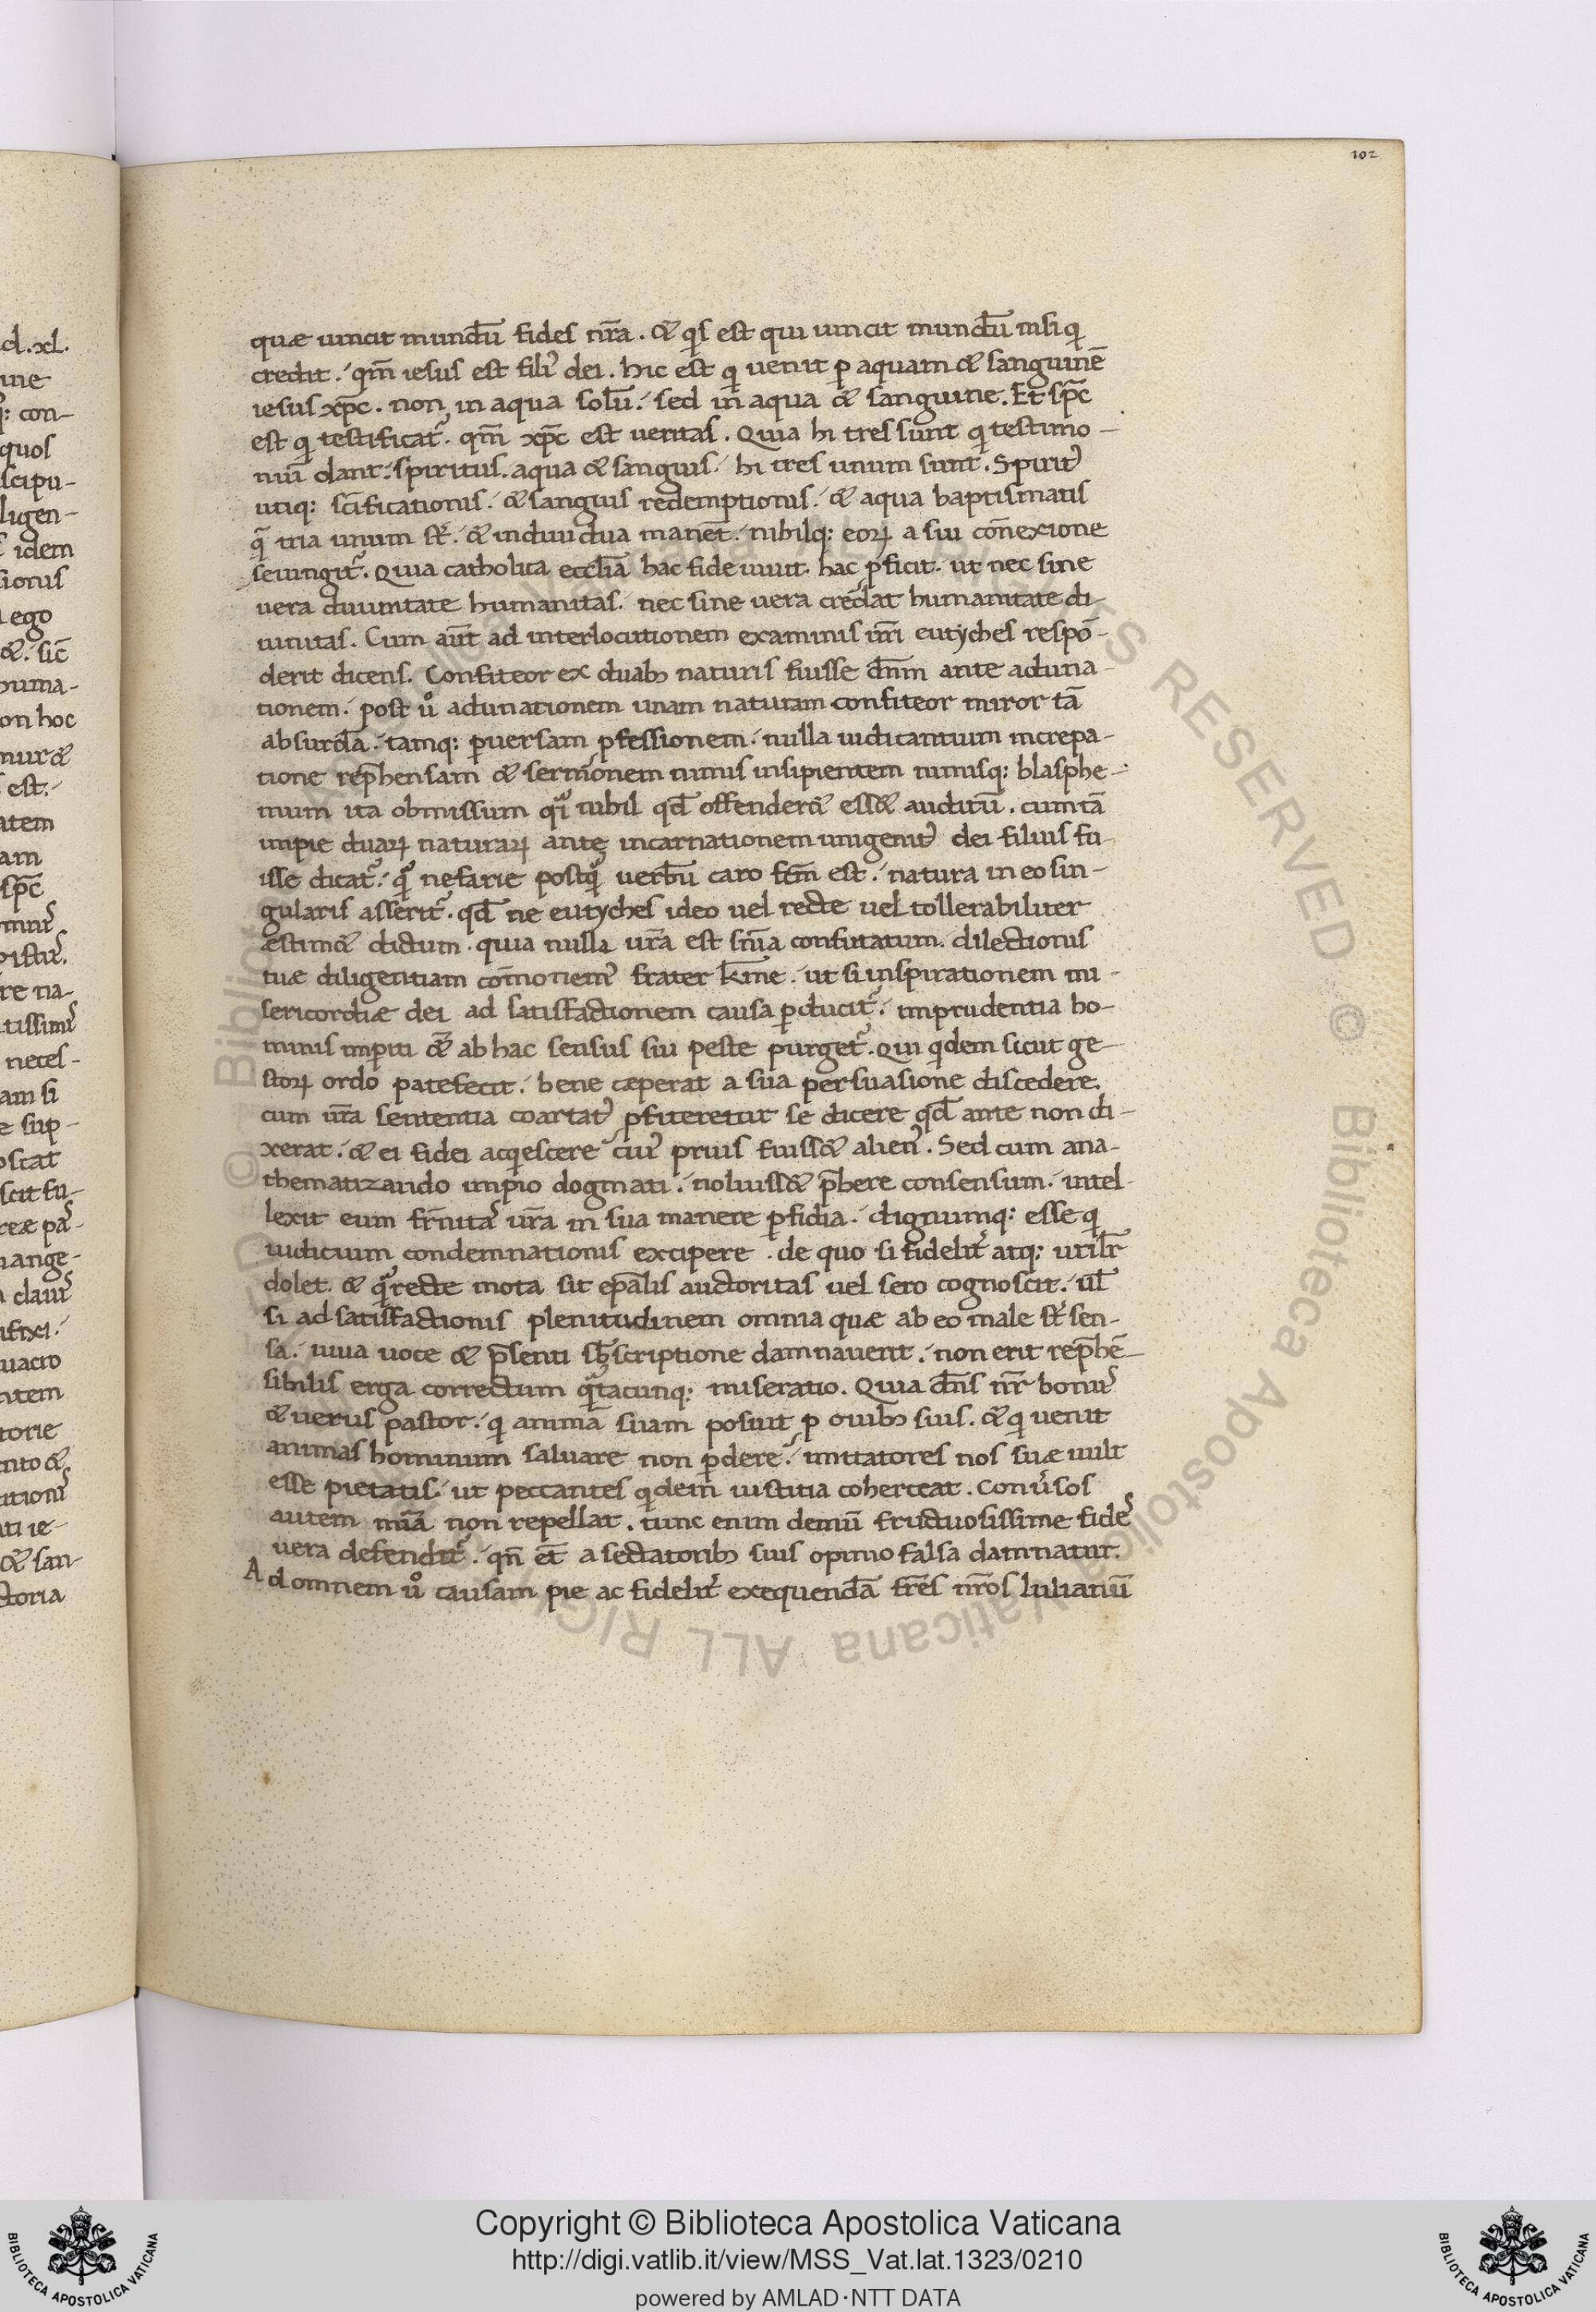 102
quæ uincit mundū fides nr̄a. & q̇s est qui uincit mundū nisi q̇
credit. qm̄ iesus est fili᾽ dei. hic est q̇ uenit p aquam & sanguinē
iesus xp̄c. non in aqua solū. sed in aqua & sanguine. Et sp̄c
est q̇ testificat᾽. qm̄ xp̄c est ueritas. Quia hi tres sunt q̇ testimo-
niū dant. spiritus. aqua & sanguis. hi tres unum sunt. Spirit᾽
utiq: sc̄ificationis. & sanguis redemptionis. & aqua baptismatis
q̄ tria unum st̄. & indiuidua manet̄. nihilq: eoꝝ a sui con̄exione
seiungit᾽. Quia catholica eccl̄ia hac fide uiuit. hac ꝓficit. ut nec sine
uera diuinitate humanitas. nec sine uera credat humanitate di-
uinitas. Cum aūt ad interlocutionem examinis ur̄i eutyches respō-
derit dicens. Confiteor ex duab; naturis fuisse dn̄m ante aduna-
tionem. post ů adunationem unam naturam confiteor miror tā
absurdā. tamq: puersam ꝓfessionem. nulla iudicantium increpa-
tione rep̄hensam & sermonem nimis insipientem nimisq: blasphe-
mum ita obmissum qᷓi nihil qd̄ offender& ess& auditū. cum tā
impie duaꝝ naturaꝝ ante incarnationem unigenit᾽ dei filius fu-
isse dicat᾽. qᷓ nefarie postqᷓ uerbū caro fc̄m est. natura in eo sin-
gularis asserit᾽. qd̄ ne eutyches ideo uel recte uel tollerabiliter
æstim& dictum. quia nulla ur̄a est sn̄ia confutatum. dilectionis
tuæ diligentiam com̄onem᾽ frater k̄me. ut si inspirationem mi-
sericordiæ dei ad satisfactionem causa pducit᾽. imprudentia ho-
minis impiti &̄ ab hac sensus sui peste purget᾽. Qui q̇dem sicut ge-
stoꝝ ordo patefecit. bene cæperat a sua persuasione discedere.
cum ur̄a sententia coartat᾽ ꝓfiteretur se dicere qd̄ ante non di-
xerat. & ei fidei acq̇escere cui᾽ prius fuiss& alien᾽. Sed cum ana-
thematizando impio dogmati. noluiss& p̄bere consensum. intel-
lexit eum fr̄nita᾽ ur̄a in sua manere pfidia. dignumq: esse q̇
iudicium condemnationis excipere. de quo si fidelit᾽ atq: utilr̄
dolet. & qᷓ recte mota sit ep̄alis auctoritas uel sero cognoscit. ul̄
si ad satisfactionis plenitudinem omnia quæ ab eo male st̄ sen-
sa. uiua uoce & p̄senti sb̄scriptione damnauerit. non erit rep̄hē-
sibilis erga correctum qᷓtacunq: miseratio. Quia dn̄s nr̄ bonu᾽
& uerus pastor. q̇ animā suam posuit p ouib; suis. & q̇ uenit
animas hominum saluare non pdere. imitatores nos suæ uult
esse pietatis. ut peccantes q̇dem iustitia coherceat. conu᾽sos
autem mīa non repellat. tunc enim demū fructuosissime fide᾽
uera defendit᾽. qn̄ et̄ a sectatorib; suis opinio falsa damnatur.
Ad omnem ů causam pie ac fidelit᾽ exequendā fr̄es nr̄os Iulianū
Copyright © Biblioteca Apostolica Vaticana
http://digi.vatlib.it/view/MSS_Vat.lat.1323/0210
powered by AMLAD·NTT DATA